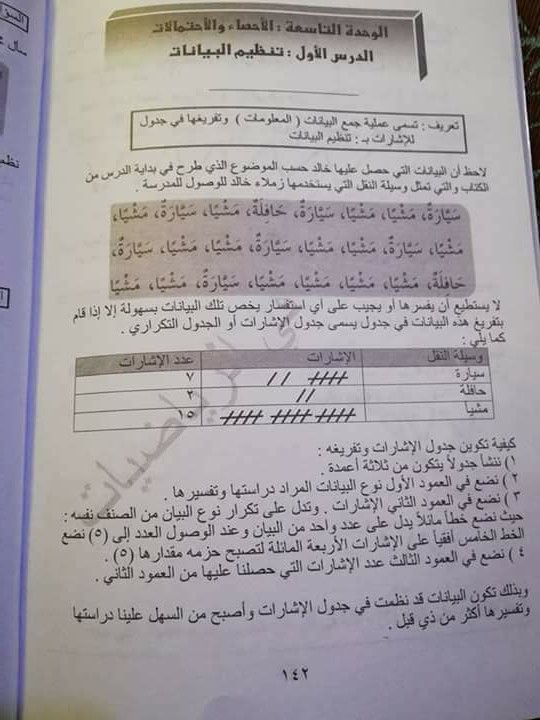 الوحدة التاسعة : الأحصاء والأحتمالات
الدرس الأول : تنظيم البيانات
تعريف : تسمى عملية جمع البيانات ( المعلومات ) وتفريغها في جدول
للإشارات بـ : تنظيم البيانات
لاحظ أن البيانات التي حصل عليها خالد حسب الموضوع الذي طرح في بداية الدرس من
الكتاب والتي تمثل وسيلة النقل التي يستخدمها زملاء خالد للوصول للمدرسة .
سَيَّارَةٌ، مَشْيًا، مَشْيًا، سَيَّارَةٌ، حَافِلَةٌ، مَشْيًا، سَيَّارَةٌ، مَشْيًا،
مَشْيًا، سَيَّارَةٌ، مَشْيًا، مَشْيًا، سَيَّارَةٌ، مَشْيًا، مَشْيًا، سَيَّارَةٌ،
حَافِلَةٌ، مَشْيًا، مَشْيًا، مَشْيًا، مَشْيًا، سَيَّارَةٌ، مَشْيًا، مَشْيًا
لا يستطيع أن يفسرها أو يجيب على أي استفسار يخص تلك البيانات بسهولة إلا إذا قام
بتفريغ هذه البيانات في جدول يسمى جدول الإشارات أو الجدول التكراري .
كما يلي :
وسيلة النقل الإشارات عدد الإشارات
سيارة ٧
حافلة ٢
مشيا ١٥
كيفية تكوين جدول الإشارات وتفريغه :
١ ) ننشأ جدولاً يتكون من ثلاثة أعمدة .
٢ ) نضع في العمود الأول نوع البيانات المراد دراستها وتفسيرها .
٣ ) نضع في العمود الثاني الإشارات . وتدل على تكرار نوع البيان من الصنف نفسه :
حيث نضع خطاً مائلاً يدل على عدد واحد من البيان وعند الوصول العدد إلى (٥) نضع
الخط الخامس أفقياً على الإشارات الأربعة المائلة لتصبح حزمه مقدارها (٥) .
٤ ) نضع في العمود الثالث عدد الإشارات التي حصلنا عليها من العمود الثاني .
وبذلك تكون البيانات قد نظمت في جدول الإشارات وأصبح من السهل علينا دراستها
وتفسيرها أكثر من ذي قبل .
١٤٢